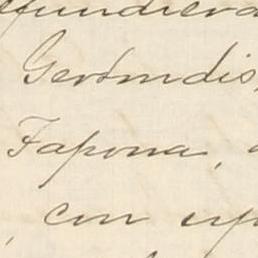 efundiera
Gertrudis,
Tapona,
con